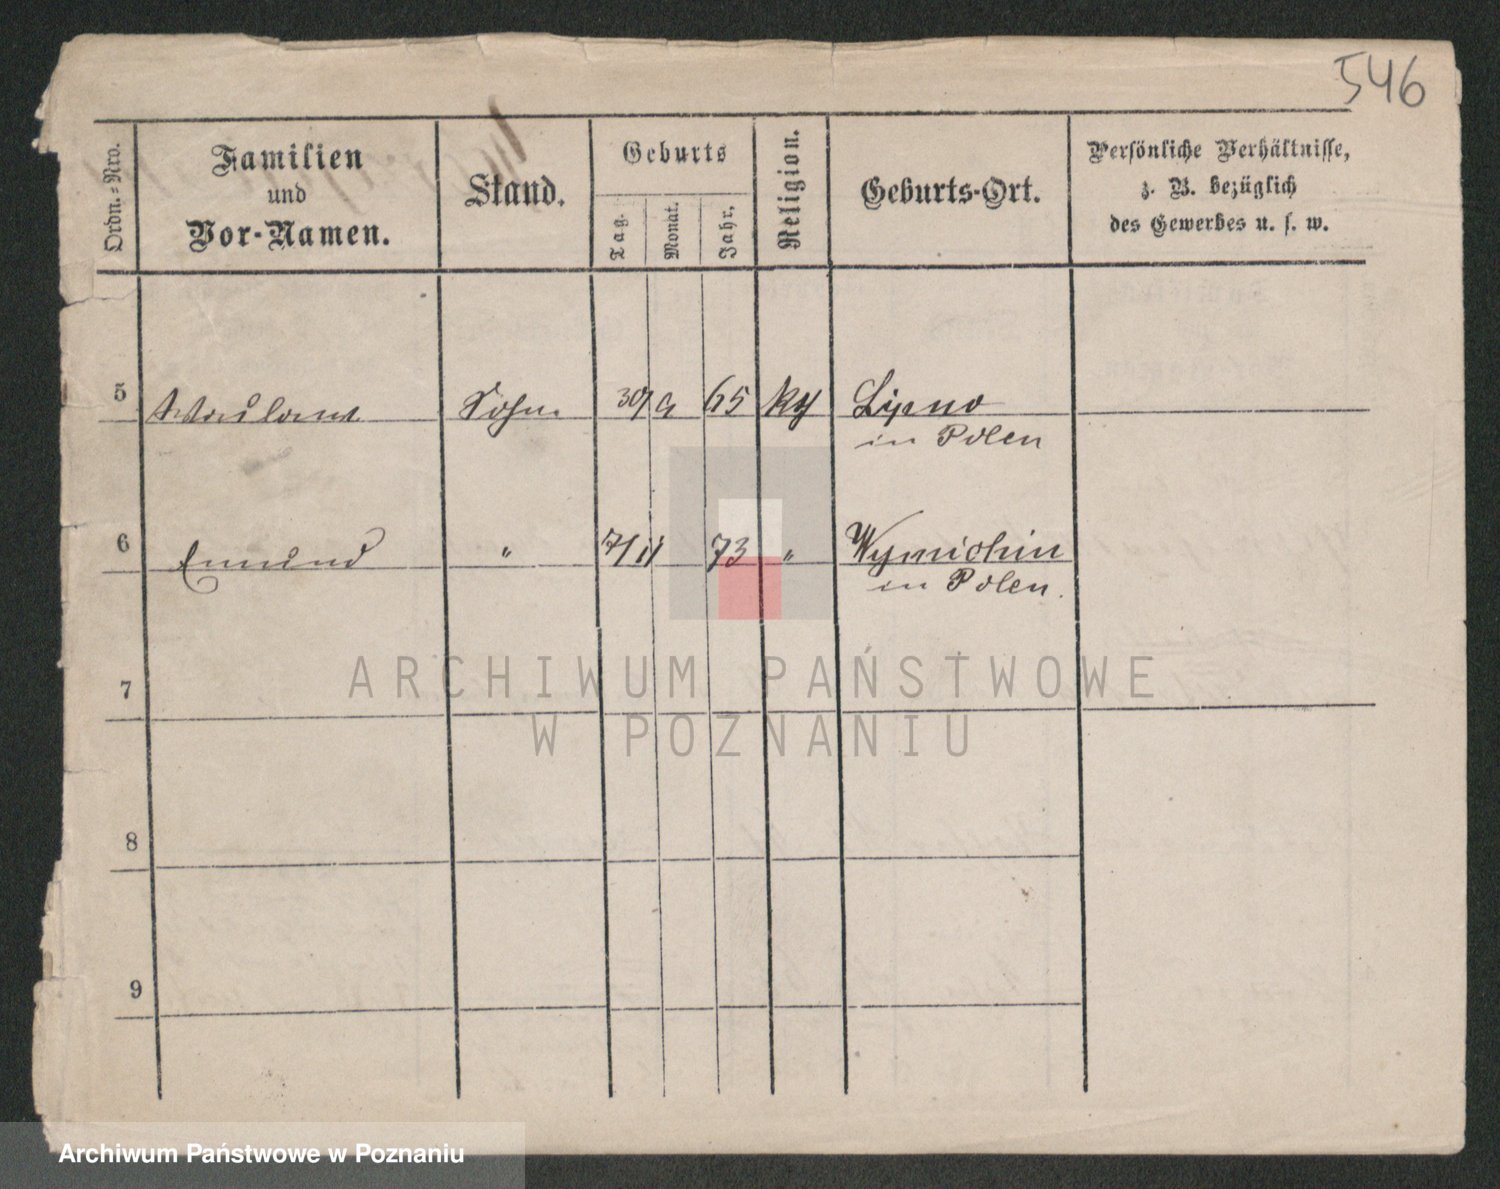 546
Ordn.-Nro.
Familien
und
Vor-Namen.
Stand.
Geburts
Tag.
Monat.
Jahr.
Religion.
Geburts-Ort.
Persönliche Verhältnisse,
z. B. bezüglich
des Gewerbes u. s. w.
5 Sohn 30/9 65 Lipno
in Polen
6 Edmund " 7/11 73 " Wymichin
in Polen.
7
ARCHIWUM PAŃSTWOWE
W POZNANIU
8
9
Archiwum Państwowe w Poznaniu